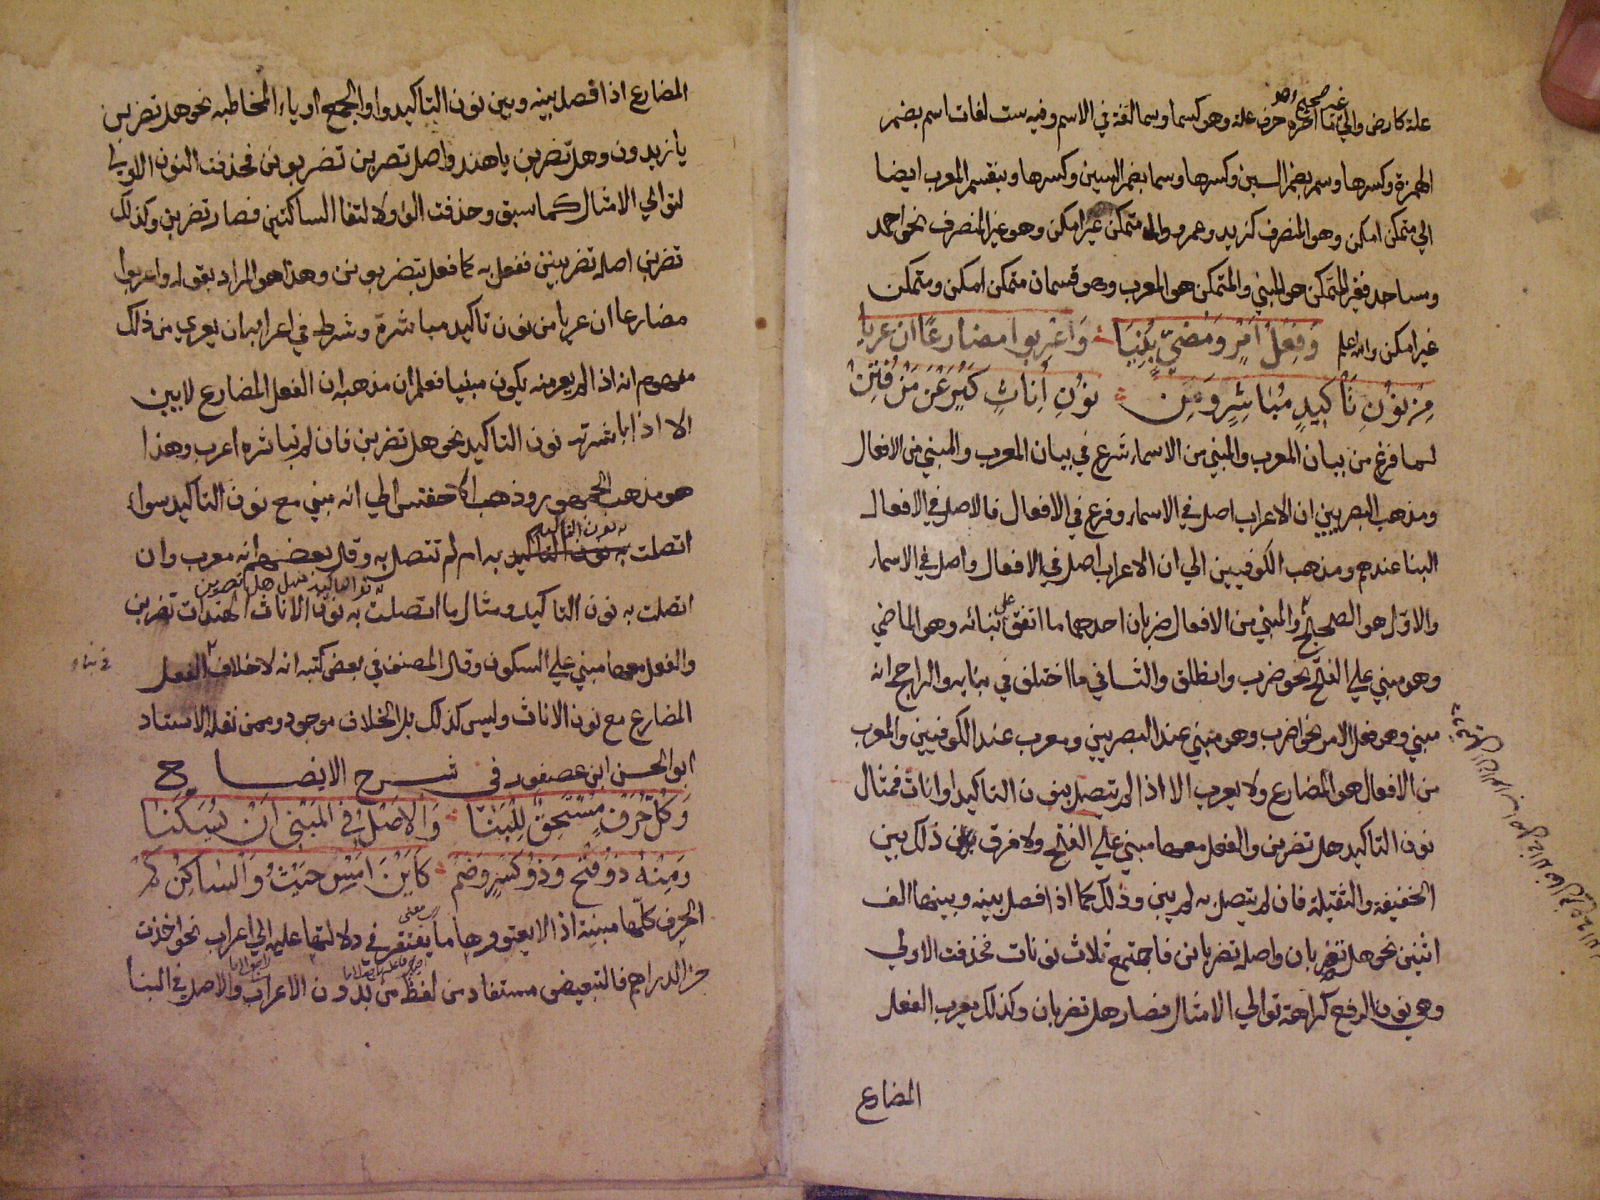 علة كارض والي ما اخره حرف علة وهو كسما وسما لغة في الاسم وفيه ست لغات اسم بضم
غير صحيح
الهمزة وكسرها وسم بضم السين وكسرها وسما بضم السين وكسرها وينقسم المعرب ايضا
الي متمكن امكن وهو المنصرف كزيد وعمرو والى متمكن غير امكن وهو غير المنصرف نحو احمد
ومساجد فغير المتمكن هو المبني والمتمكن هو المعرب وهو قسمان متمكن امكن ومتمكن
غير امكن والله اعلم وَفِعْلُ اَمْرٍ وَمُضِيٍّ بُنِيَا وَاَعْرِبوا مضارعًا ان عريا
مِنْ نوُنِ تَأكيدٍ مُبَاشِرٍ وَمِن نوُنِ اِناثٍ كَيَرُعْنَ مَنْ فُتِنْ
لما فرغ من بيان المعرب والمبني من الاسماء شرع في بيان المعرب والمبني من الافعال
ومذهب البصريين ان الاعراب اصل في الاسماء وفرع في الافعال فالاصل في الافعال
البنا عندهم ومذهب الكوفيين الي ان الاعراب اصل في الافعال واصل في الاسماء
والاوّل هو الصحيح والمبني من الافعال ضربان احدهما ما اتفق على بنائه وهو الماضي
وهو مبني علي الفتح نحو ضرب وانطلق والثاني ما اختلف في بنايه والراجح انه
مبني وهو فعل الامر نحو اضرب وهو مبني عند البصريين ومعرب عند الكوفيين والمعرب
من الافعال هو المضارع ولا يعرب الا اذا لم يتصل بنون التاكيد او اناث فمثال
نون التاكيد هل تضربن والفعل معها مبني علي الفتح ولا فرق في ذلك بين
الخفيفة والثقيلة فان لم يتصل به لم يبن وذلك كما اذا فصل بينه وبينها الف
اثنين نحو هل تضربان واصله تضربانن فاجتمع ثلاث نونات فحذفت الاولي
وهي نون الرفع كراهة توالي الامثال فصار هل تضربان وكذلك يعرب الفعل
المضارع
المضارع اذا فصل بينه وبين نون التاكيد واو الجمع او ياء المخاطبه نحو هل تضربن
يا زيدون وهل تضربن يا هند واصل تضربن تضربونن فحذفت النون الاولي
لتوالي الامثال كما سبق وحذفت الواو لالتقا الساكنين فصار تضربن وكذلك
تضربن اصله تضربينن ففعل به كما فعل بتضربونن وهذا هو المراد بقوله واعربوا
مضارعا ان عريا من نون تاكيد مباشرة وشرط في اعرابه ان يعري من ذلك
مفهوم انه اذا لم يعر منه يكون مبنيا فعلم ان مذهبه ان الفعل المضارع لا يبن
الا اذا باشرته نون التاكيد نحو هل تضربن فان لم تباشره اعرب وهذا
هو مذهب الجمهور وذهب الاخفش الي انه مبني مع نون التاكيد سواء
به نون التاكيد
اتصلت به ام لم تتصل به وقال بعضهم انه معرب وان
اتصلت به نون التاكيد ومثال ما اتصلت به نون الاناث الهندات تضربن
والفعل معها مبني علي السكون وقال المصنف في بعض كتبه انه لا خلاف الفعل
في بناء
المضارع مع نون الاناث وليس كذلك بل الخلاف موجود وممن نقله الاستاد
ابو الحسن ابن عصفور في شرح الايضاح
وَكُلُّ حَرْفٍ مُسْتَحِقٌّ لِلْبِنَا وَالاَصْلُ في المَبْنى اَنْ يُسَكَّنَا
وَمِنْهُ ذوُ فَتْحٍ وَذوُ كَسْرٍ وَضَمْ كَاَيْنَ اَمْسِ حَيْثُ وَالسَّاكِنُ كَمْ
الحرف كلها مبنية اذ لا يعتورها ما يفتقر في دلالتها عليه الي اعراب نحو اخذت
من الدراهم فالتبعيض مستفاد من لفظ من بدون الاعراب والاصل في البنا